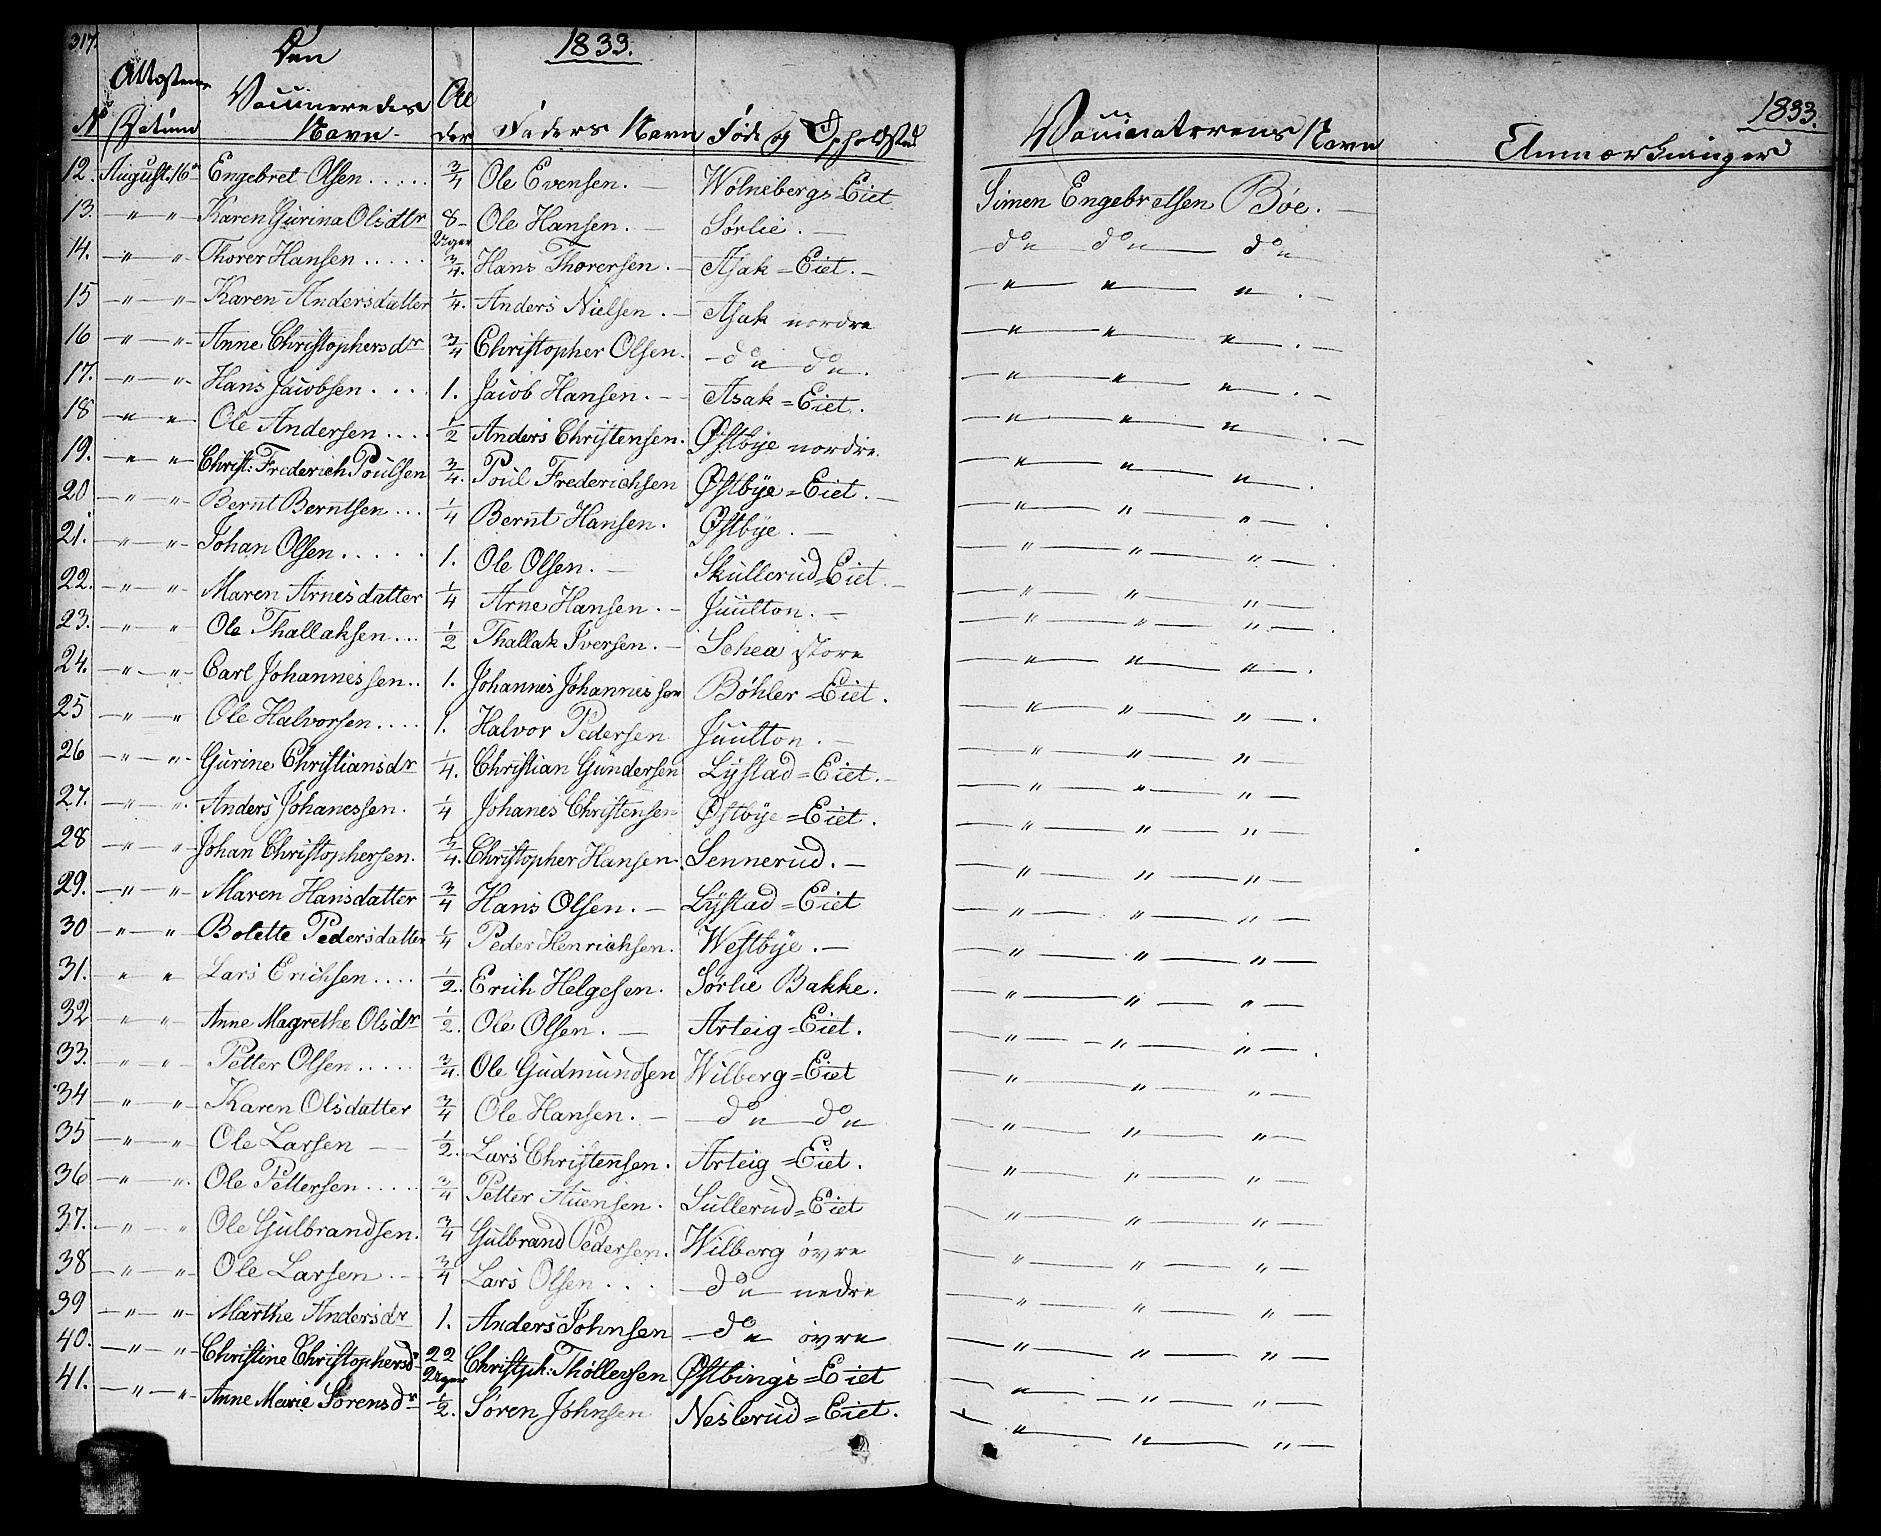 317.
Den
1833.
Attestens Vaccineredes Al
No Datum Navn der Faders Navn Føde og Opholdsted
12. August. 16de Engebret Olsen..... 3/4 Ole Evensen. — Wolnebergs=Eiet
13. — " — " Karen Gurina Olsdtr 8 Uger Ole Hansen. — Sørlie. —
14. — " — " Thorer Hansen..... 3/4. Hans Thorersen. — Asak=Eiet. —
15 — " — " Karen Andersdatter 1/4. Anders Nielsen. — Asak nordre
16 — " — " Anne Christophersdr 3/4 Christopher Olsen. — do do.
17. — " — " Hans Jacobsen.... 1. Jacob Hansen. — Asak=Eiet.
18 — " — " Ole Andersen.... 1/2 Anders Christensen. Østbÿe nordre.
19. — " — " Christ: Friderich Poulsen 3/4. Poul Frederichsen Østbÿe=Eiet. —
20 — " — " Bernt Berntsen... 1/4 Bernt Hansen. Østbÿe. —
21. — " — " Johan Olsen..... 1. Ole Olsen. — Skullerud=Eiet. —
22. — " — " Maren Arnesdatter 1/4 Arne Hansen. — Juulton. —
23. — " — " Ole Thallaksen... 1/2 Thallak Iversen. — Schea store
24. — " — " Carl Johannessen.. 1. Johannes Johannessen Bøhler=Eiet.
25 — " — " Ole Halvorsen.... 1. Halvor Pedersen Juulton. —
26 — " — " Gurine Christiansdr 1/4. Christian Gundersen Lÿstad=Eiet. —
27. — " — " Anders Johanessen. 1/4 Johanes Christensen Østbÿe=Eiet.
28 — " — " Johan Christophersen. 3/4. Christopher Hansen. Sennerud. —
29. — " — " Maren Hansdatter 3/4 Hans Olsen. — Lÿstad=Eiet
30 — " — " Bolette Pedersdatter 1/4 Peder Henrichsen. Westbÿe. —
31. " " Lars Erichsen.... 1/2. Erich Helgesen. Sørlie Bakke.
32 — " — " Anne Magrethe Olsdr 1/2. Ole Olsen. — Arteig=Eiet.
33. — " — " Petter Olsen..... 3/4. Ole Gudmundsen Wilberg=Eiet
34 — " — " Karen Olsdatter 3/4 Ole Hansen. — — do — do
35 — " — " Ole Larsen — 1/2. Lars Christensen. Arteig=Eiet.
36 — " — " Ole Pettersen..... 3/4 Petter Sullerud=Eiet
37. — " — " Ole Gulbrandsen. 3/4 Gulbrand Pedersen. Wilberg øvre
38 — " — " Ole Larsen. — 3/4 Lars Olsen... — do nedre
39 — " — " Marthe Andersdr 1. Anders Johnsen — do øvre
40. — " — " Christine Christophersdr 22 Uger Christph: Thøllersen Østbings=Eiet
41. — " — " Anne Marie Sørensdr 1/2. Søren Johnsen Neslerud=Eiet.
1833.
Vaccinatorens Navn Anmærkninger
Simen Engebretsen Bøe. —
— do — do — do —
— " — " — " . —
— " — " — " . —
— " — " — " . —
— " — " — " . —
— " — " — " .
— " — " — " — .
— " — " — " — .
— " — " — " —
— " — " — " — .
— " — " — " — .
— " — " — " — .
— " — " — " —
— " — " — " —
— " — " — " —
— " — " — " —
— " — " — " —
— " — " — " —
— " — " — " —
— " — " — " — .
— " — " — " —
— " — " — " —
— " — " — " —
— " — " — " —
— " — " — " —
— " — " — " —
— " — " — " —
— " — " — " —
— " — " — " —